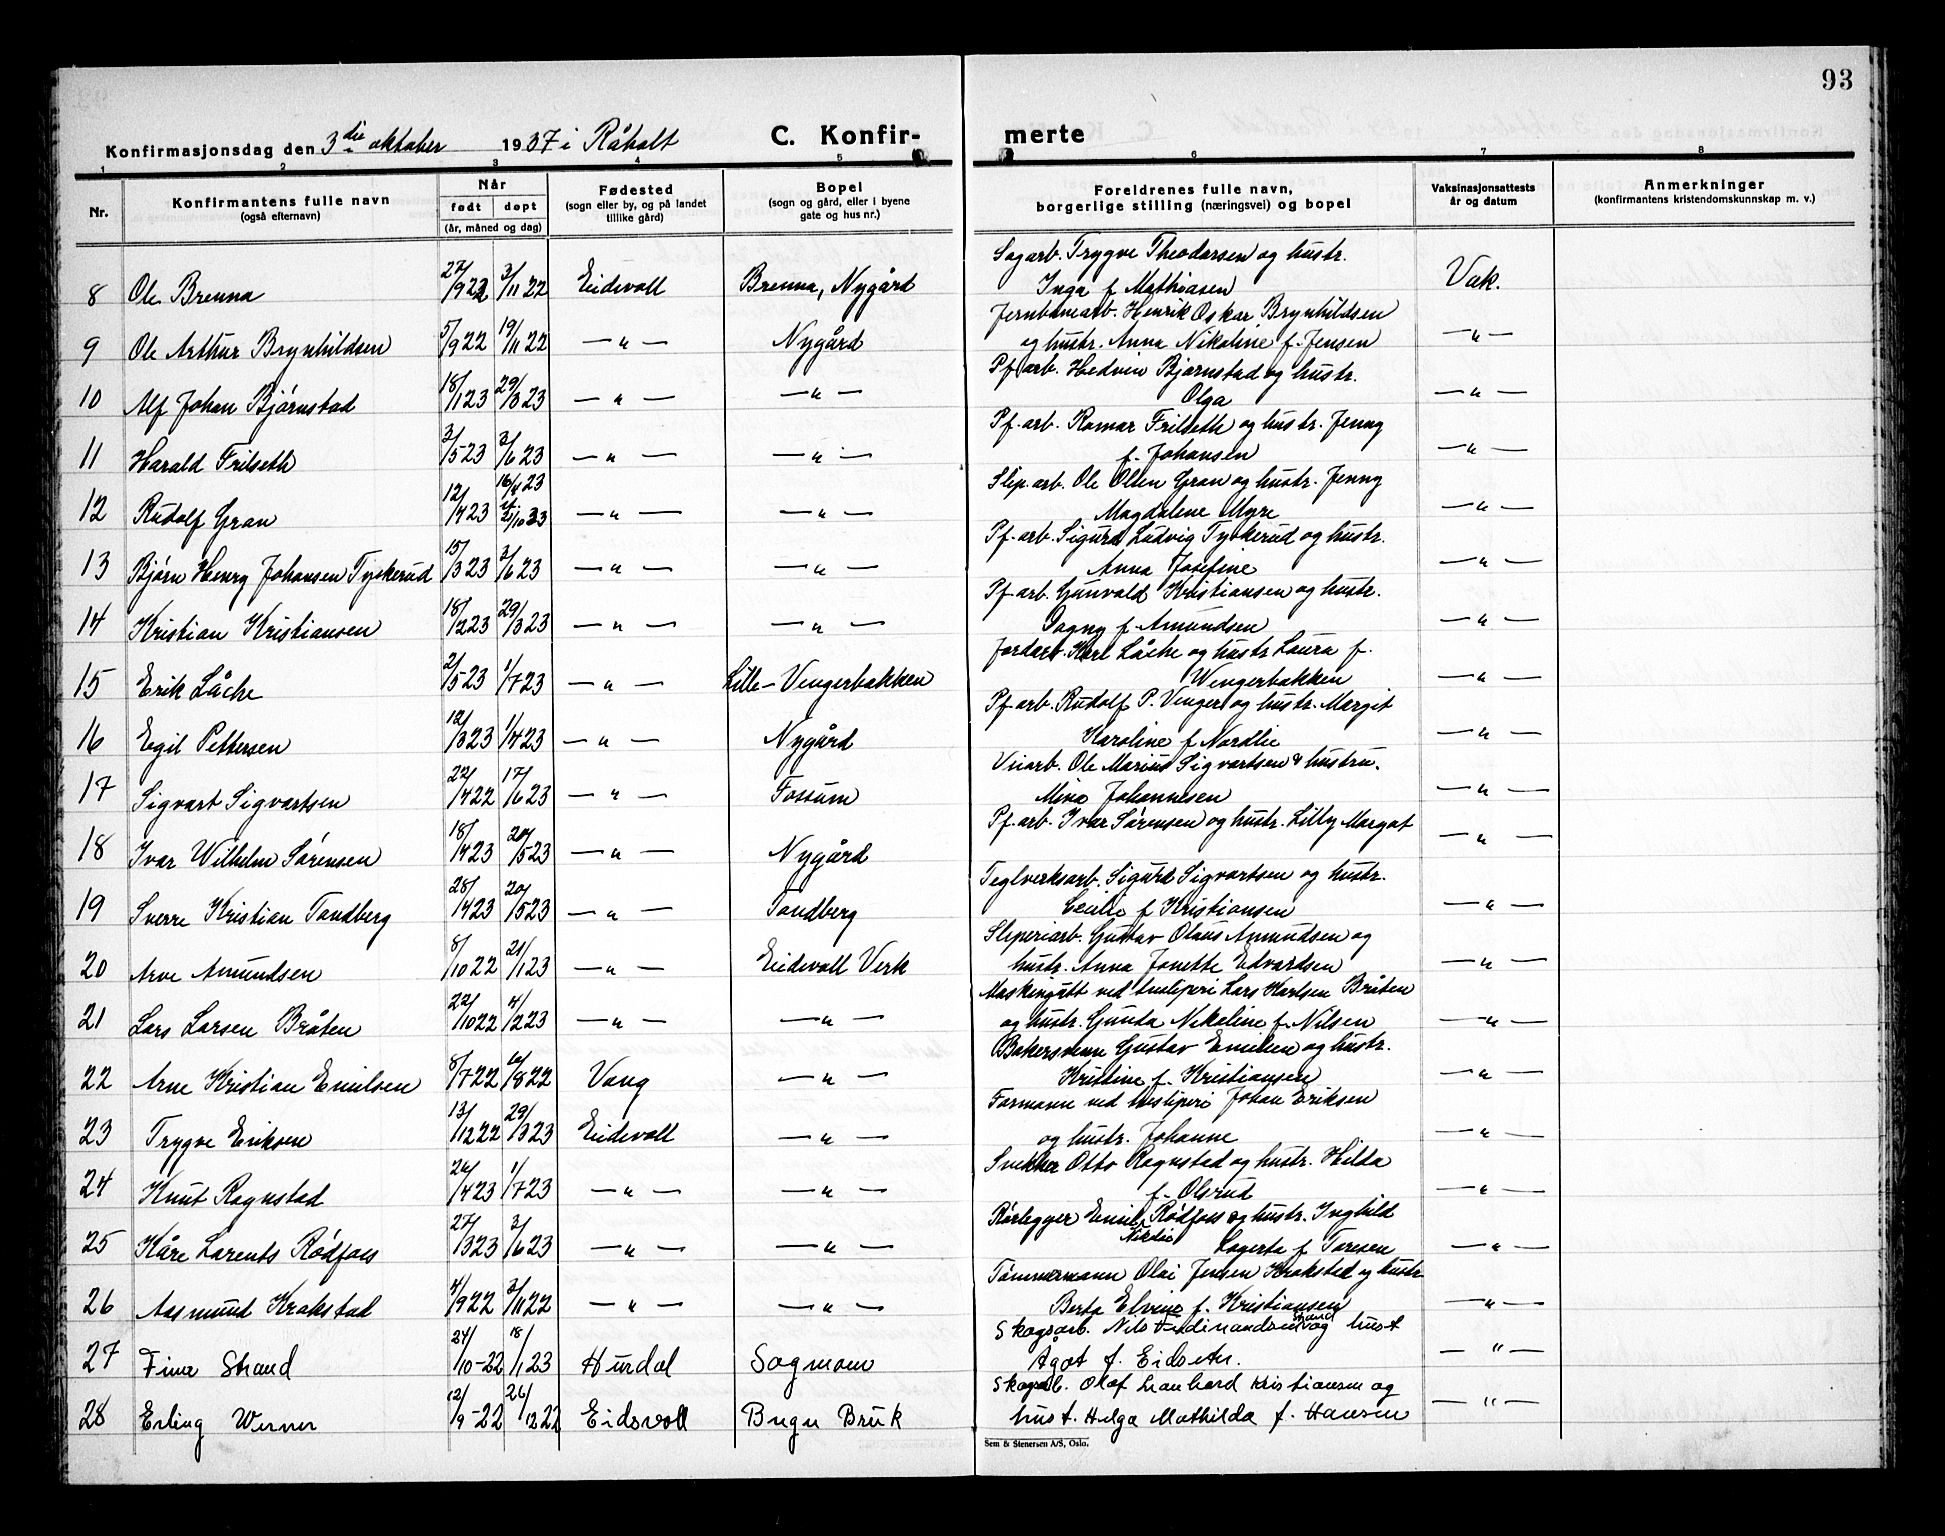 93
Konfirmasjonsdag den 3die oktober 1937 i Råholt C. Konfir- merte
1 2 3 4 5 6 7 8
Nr. Konfirmantens fulle navn (også efternavn) Når født døpt (år, måned og dag) Fødested (sogn eller by, og på landet tillike gård) Bopel (sogn og gård, eller i byene gate og hus nr.) Foreldrenes fulle navn, borgerlige stilling (næringsvei) og bopel Vaksinasjonsattests år og datum Anmerkninger (konfirmantens kristendomskunnskap m. v.)
8 Ole Brenna 27/9 22 3/11 22 Eidsvoll Brenna, Nygård Sagarb. Trygve Theodorsen og hustr. Vak.
Inga f. Mathiasen
9 Ole Arthur Brynhildsen 5/9 22 19/11 22 — " — Nygård Jernbanearb. Henrik Oskar Brynhildsen — " —
og hustr. Anna Nikoline f. Jensen
10 Alf Johan Bjørnstad 18/1 23 29/3 23 — " — — " — Pf. arb. Hedvin Bjørnstad og hustr. — " —
Olga
11 Harald Frilseth 3/5-23 3/6 23 — " — — " — Pf. arb. Ramar Frilseth og hustr. Jenny — " —
f. Johansen
12 Rudolf Gran 12/4 23 16/4 23 — " — — " — Slip. arb. Ole Olsen Gran og hustr. Jenny — " —
Magdalene Myre
13 Bjørn Henry Johansen Tyskerud 15/3 23 3/6 23 — " — — " — Pf. arb. Sigurd Ludvig Tyskerud og hustr. — " —
Anna Josefine
14 Kristian Kristiansen 18/2 23 29/3 23 — " — — " — Pf. arb. Gunvald Kristiansen og hustr. — " —
Dagny f. Amundsen
15 Erik Låche 2/5-23 1/7 23 — " — Lille-Vengerbakken Jordarb. Karl Låche og hustr. Laura f. — " —
Wengerbakken
16 Egil Pettersen 12/3 23 1/4 23 — " — Nygård Pf. arb. Rudolf P. Venger og hustr. Margit — " —
Karoline f. Nordlie
17 Sigvart Sigvartsen 22/4 22 17/6 23 — " — Fossum Veiarb. Ole Marius Sigvartsen & hustru. — " —
Mina Johannesen
18 Ivar Wilhelm Sørensen 18/4 23 20/5 23 — " — Nygård Pf. arb. Ivar Sørensen og hustr. Lilly Margot — " —
19 Sverre Kristian Tandberg 28/4 23 20/5 23 — " — Tandberg Teglverksarb. Sigurd Sigvartsen og hustr. — " —
Cecilie f. Kristiansen
20 Arve Amundsen 8/10 22 21/1 23 — " — Eidsvoll Verk Sliperiarb. Gustav Olaus Amundsen og — " —
hustr. Anna Jonette Edvardsen
21 Lars Larsen Bråten 22/10 22 4/2 23 — " — — " — Maskingutt ved tresliperi Lars Karlsen Bråten — " —
og hustr. Gunda Nikoline f. Nilsen
22 Arne Kristian Emilsen 8/7 22 /8 22 Vang — " — Bakersvenn Gustav Emilsen og hustr. — " —
Kristine f. Kristiansen
23 Trygve Eriksen 13/12 22 29/3 23 Eidsvoll — " — Formann ved tresliperi Johan Eriksen — " —
og hustr. Johanne
24 Knut Rognstad 26/4 23 1/7 23 — " — — " — Snekker Otto Rognstad og hustr. Hilda — " —
f. Olsrud
25 Kåre Lorents Rødfoss 27/3 23 3/6 23 — " — — " — Rørlegger Emil Rødfoss og hustr. Ingbild — " —
Lagerta f. Toresen
26 Aasmund Krakstad 4/9 22 3/11 22 — " — — " — Tømmermann Olai Jensen Krakstad og hustr. — " —
Berta Elvine f. Kristiansen
27 Finn Strand 24/10-22 18/1 23 Hurdal Sagmoen Skogsarb. Nils Ferdinandsen Strand og hust — " —
Ågot f. Eidseter.
28 Erling Werner 12/9-22 26/12 22 Eidsvoll Bugu Bruk Skogsarb. Olaf Leonhard Kristiansen og — " —
hust. Helga Mathilda f. Hansen
Sem & Stenersen A/S, Oslo.